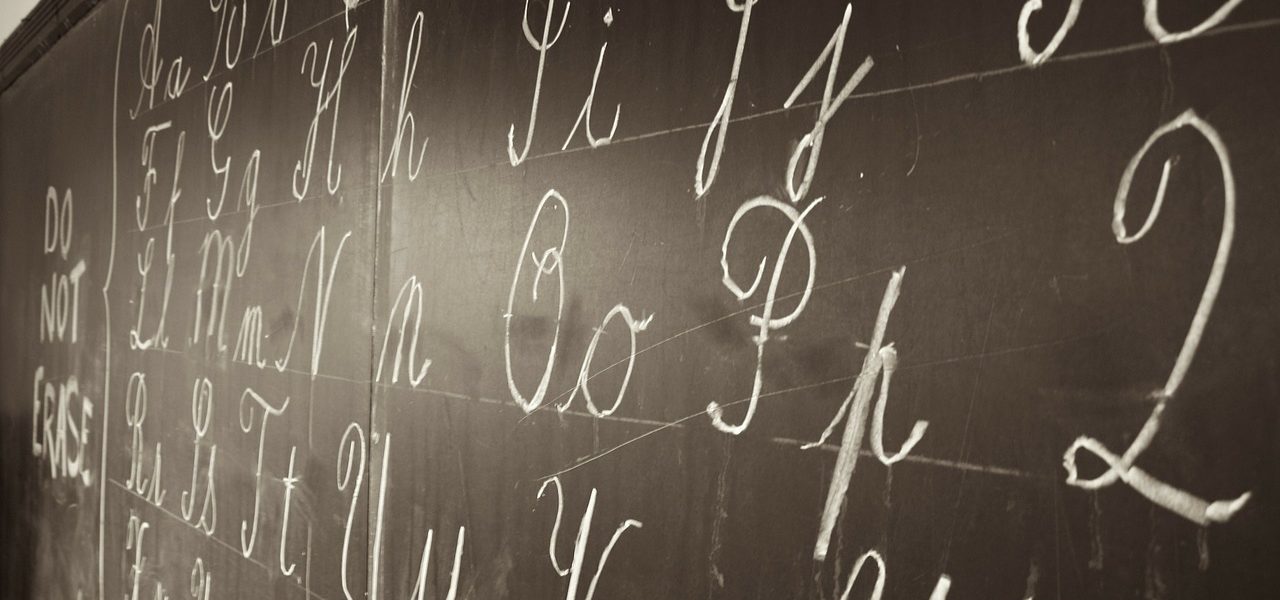 DO
NOT
ERASE
Aa
Ff Gg Hh Ii Jj
Ll Mm Nn Oo Pp Q
Rr Ss Tt Uu V